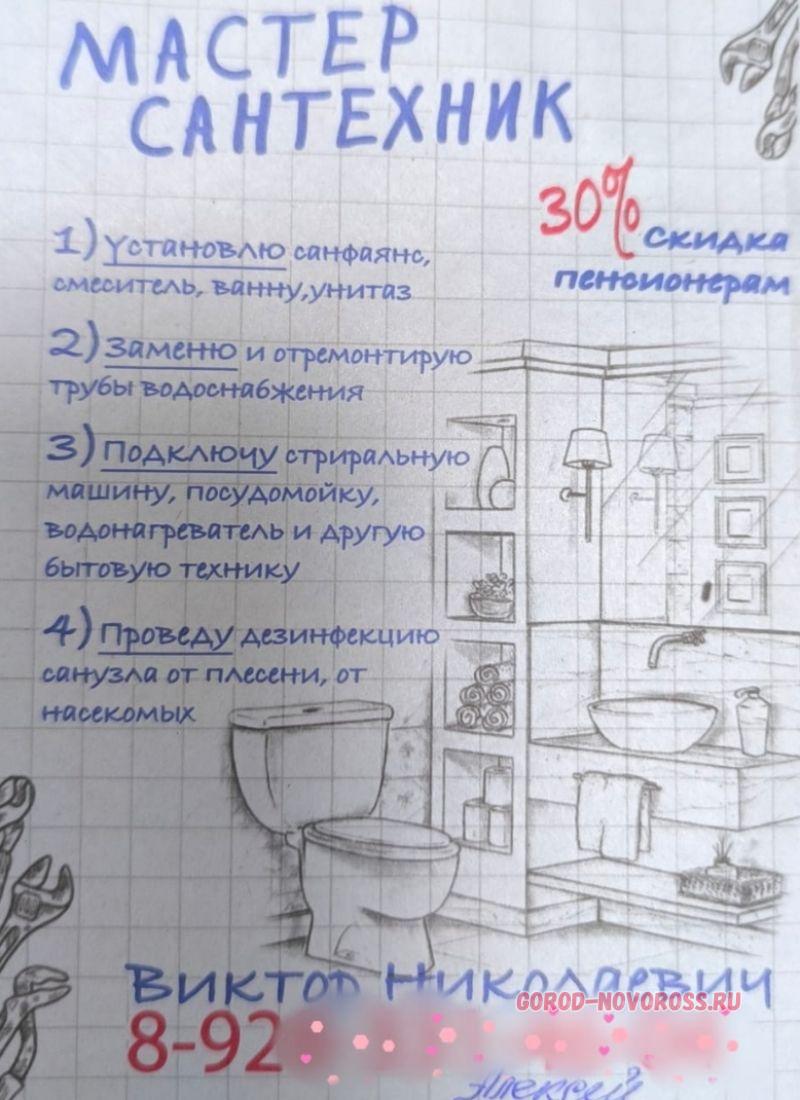 МАСТЕР
САНТЕХНИК
30% скидка
пенсионерам
1) Установлю санфаянс,
смеситель, ванну, унитаз
2) Заменю и отремонтирую
трубы водоснабжения
3) Подключу стриральную
машину, посудомойку,
водонагреватель и другую
бытовую технику
4) Проведу дезинфекцию
санузла от плесени, от
насекомых
Виктор Николаевич
GOROD-NOVOROSS.RU
8-92
Алексей